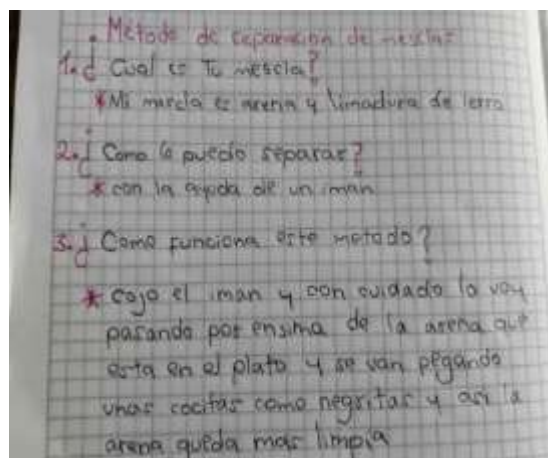 . Metodo de separacion de mezclas
1. ¿ Cual es Tu mezcla?
* Mi mezcla es arena y limadura de ierro
2. ¿ Como lo puedo separar?
* con la ayuda de un iman
3. ¿ Como funciona este metodo?
* cojo el iman y con cuidado lo voy
pasando por ensima de la arena que
esta en el plato y se van pegando
unas cocitas como negritas y asi la
arena queda mas limpia